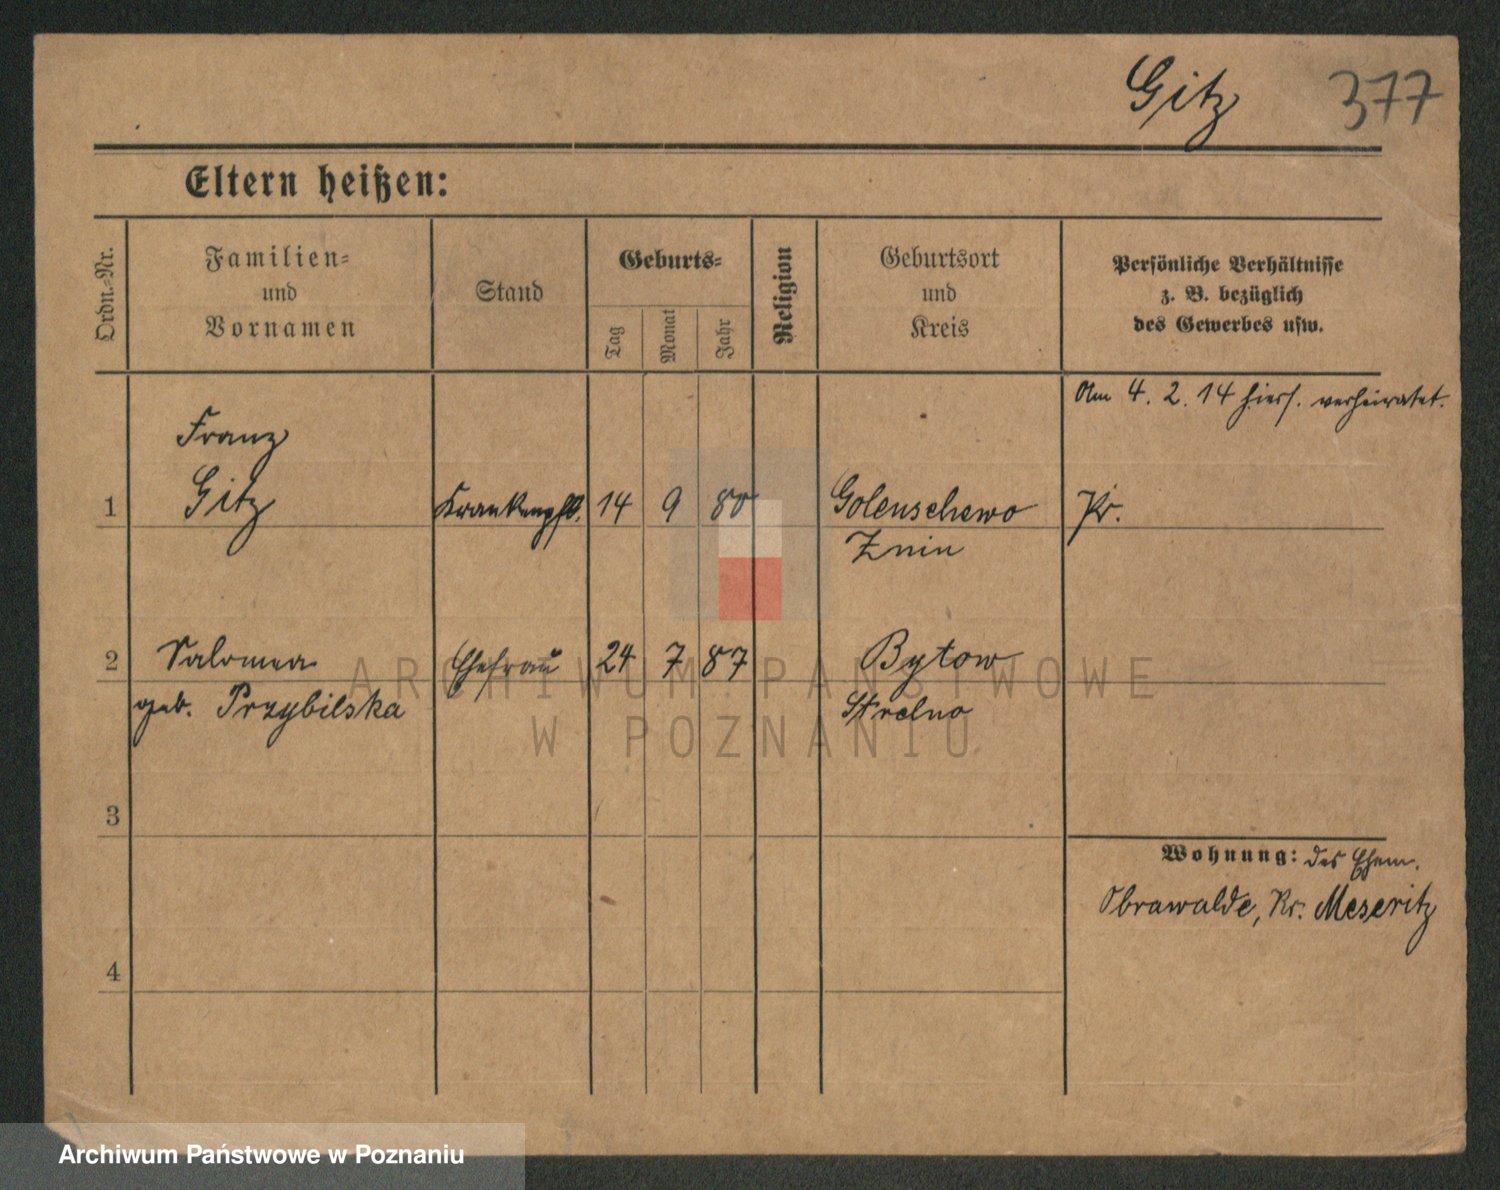 Gitz 377
Eltern heißen:
Ordn.-Nr.
Familien-
und
Vornamen
Stand
Geburts-
Tag
Monat
Jahr
Religion
Geburtsort
und
Kreis
Persönliche Verhältnisse
z. B. bezüglich
des Gewerbes usw.
Am 4. 2. 14 hiers. verheiratet.
Franz
1 Gitz Krankenpfl. 14 9 80 Goleuschewo Pr.
Znin
2 Salomea Ehefrau 24 7 87 Bytow
geb. Przybilska Strelno
3
Wohnung: des Ehem.
Obrawalde, Kr. Meseritz
4
ARCHIWUM PAŃSTWOWE
W POZNANIU
Archiwum Państwowe w Poznaniu